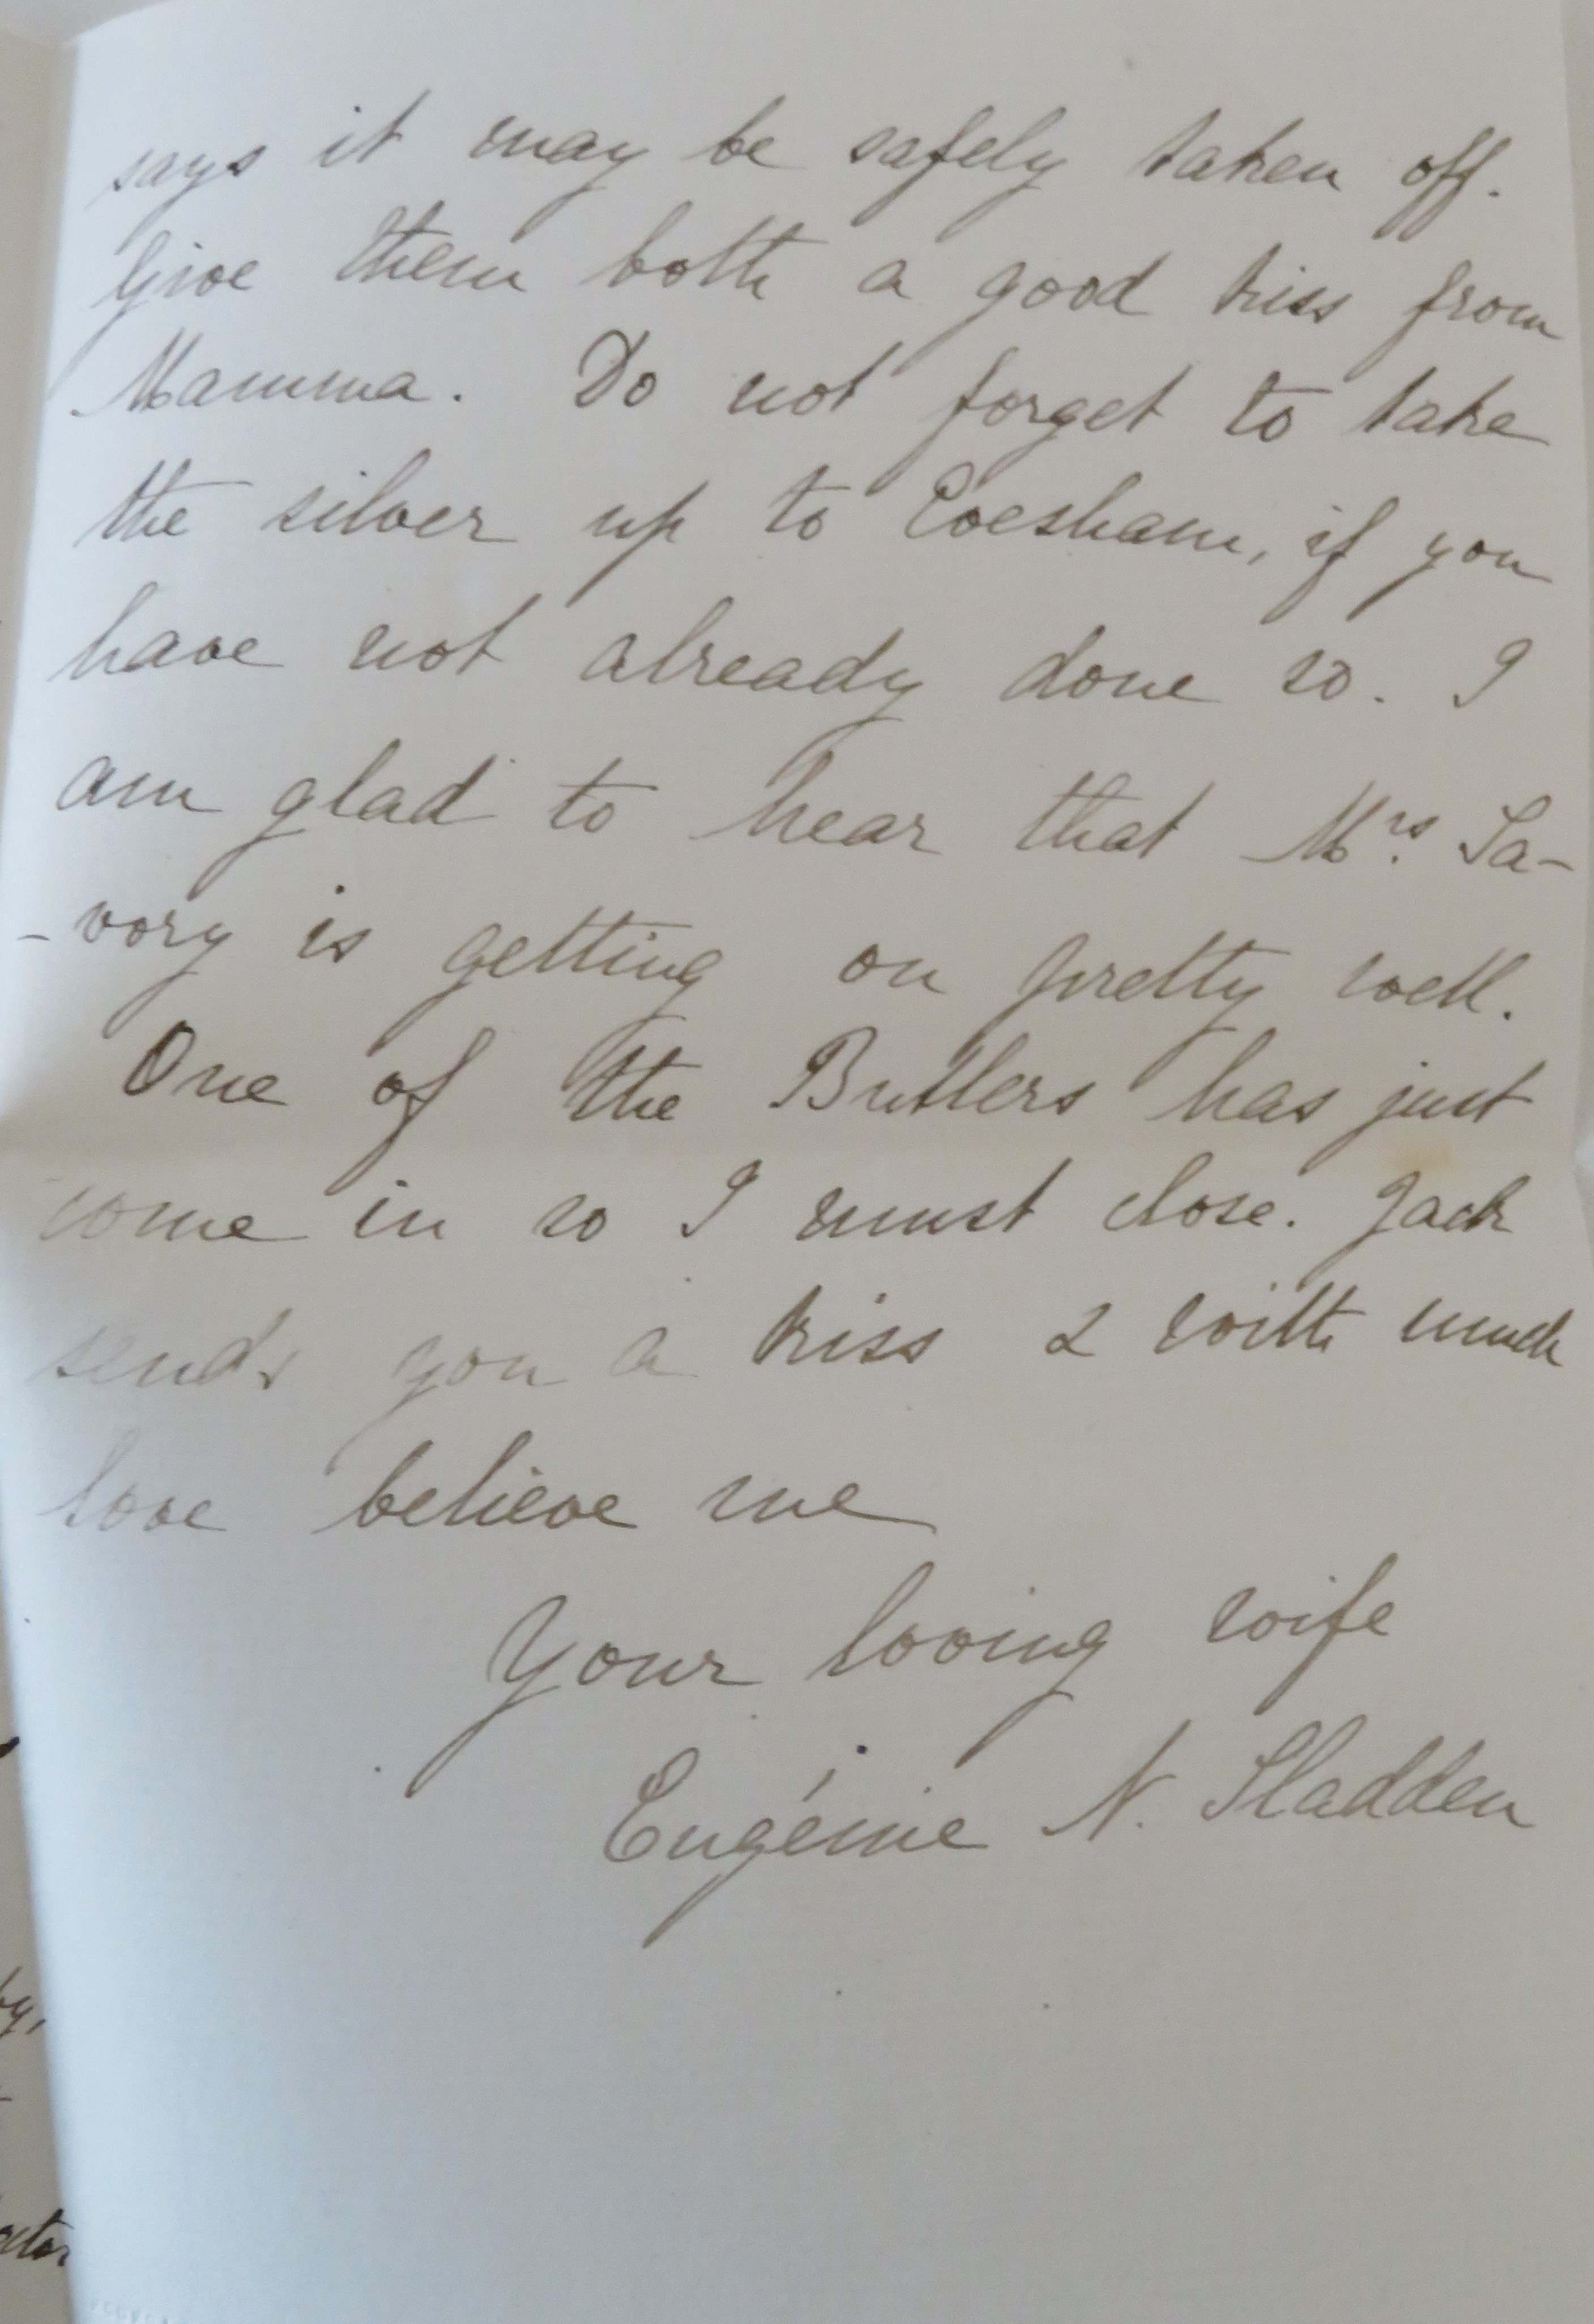 says it may be safely taken off.
Give them both a good kiss from
Mamma. Do not forget to take
the silver up to Evesham, if you
have not already done so. I
am glad to hear that Mrs. Sa-
-vory is getting on pretty well.
One of the Butlers has just
come in so I must close. Jack
sends you a kiss & with much
love believe me
Your loving wife
Eugénie N. Sladden